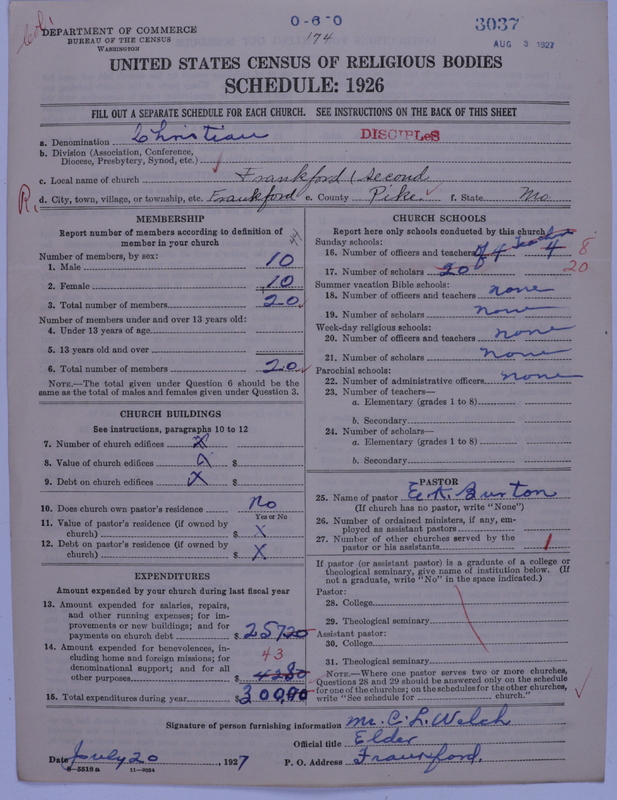 Col.
0-6-0
174
3037
AUG 3 1927
DEPARTMENT OF COMMERCE
BUREAU OF THE CENSUS
WASHINGTON
UNITED STATES CENSUS OF RELIGIOUS BODIES
SCHEDULE: 1926
FILL OUT A SEPARATE SCHEDULE FOR EACH CHURCH. SEE INSTRUCTIONS ON THE BACK OF THIS SHEET
a. Denomination Christian DISCIPLeS
b. Division (Association, Conference, Diocese, Presbytery, Synod, etc.)
c. Local name of church Frankford (Second
R. d. City, town, village, or township, etc. Frankford e. County Pike f. State Mo
MEMBERSHIP
Report number of members according to definition of member in your church
Number of members, by sex:
1. Male 10
2. Female 10
3. Total number of members 20
Number of members under and over 13 years old:
4. Under 13 years of age
5. 13 years old and over
6. Total number of members 20
NOTE.—The total given under Question 6 should be the same as the total of males and females given under Question 3.
CHURCH BUILDINGS
See instructions, paragraphs 10 to 12
7. Number of church edifices X
8. Value of church edifices X $
9. Debt on church edifices X $
10. Does church own pastor's residence No
Yes or No
11. Value of pastor's residence (if owned by church) $ X
12. Debt on pastor's residence (if owned by church) $ X
EXPENDITURES
Amount expended by your church during last fiscal year
13. Amount expended for salaries, repairs, and other running expenses; for improvements or new buildings; and for payments on church debt $ 25720
14. Amount expended for benevolences, including home and foreign missions; for denominational support; and for all other purposes 43 $ 4280
15. Total expenditures during year $ 300,00
CHURCH SCHOOLS
Report here only schools conducted by this church
Sunday schools:
16. Number of officers and teachers of 4 Teachers 4 8
17. Number of scholars 20 20
Summer vacation Bible schools:
18. Number of officers and teachers none
19. Number of scholars none
Week-day religious schools:
20. Number of officers and teachers none
21. Number of scholars none
Parochial schools:
22. Number of administrative officers none
23. Number of teachers—
a. Elementary (grades 1 to 8)
b. Secondary
24. Number of scholars—
a. Elementary (grades 1 to 8)
b. Secondary
PASTOR
25. Name of pastor E. K. Burton
(If church has no pastor, write "None")
26. Number of ordained ministers, if any, employed as assistant pastors
27. Number of other churches served by the pastor or his assistants 1
If pastor (or assistant pastor) is a graduate of a college or theological seminary, give name of institution below. (If not a graduate, write "No" in the space indicated.)
Pastor:
28. College
29. Theological seminary
Assistant pastor:
30. College
31. Theological seminary
NOTE.—Where one pastor serves two or more churches, Questions 28 and 29 should be answered only on the schedule for one of the churches; on the schedules for the other churches, write "See schedule for church."
Signature of person furnishing information Mr. C. L. Welch
Official title Elder
Date July 20, 1927 P. O. Address Frankford.
8-5518a 11-9034